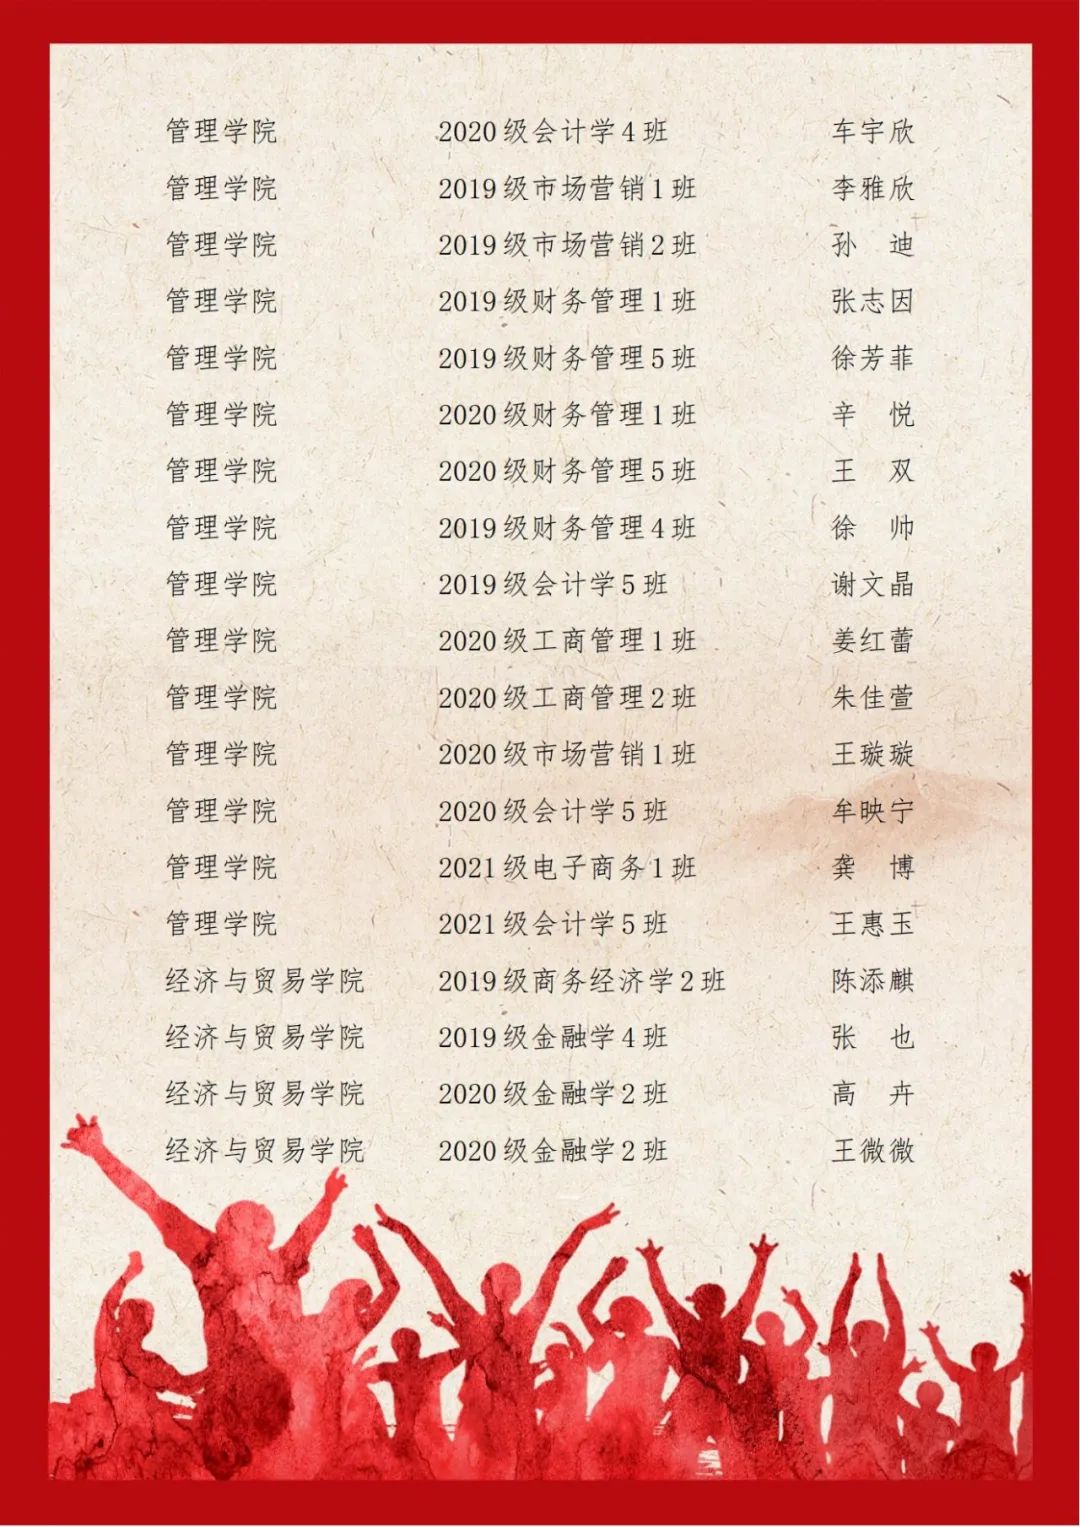 管理学院 2020级会计学4班 车宇欣
管理学院 2019级市场营销1班 李雅欣
管理学院 2019级市场营销2班 孙 迪
管理学院 2019级财务管理1班 张志因
管理学院 2019级财务管理5班 徐芳菲
管理学院 2020级财务管理1班 辛 悦
管理学院 2020级财务管理5班 王 双
管理学院 2019级财务管理4班 徐 帅
管理学院 2019级会计学5班 谢文晶
管理学院 2020级工商管理1班 姜红蕾
管理学院 2020级工商管理2班 朱佳萱
管理学院 2020级市场营销1班 王璇璇
管理学院 2020级会计学5班 牟映宁
管理学院 2021级电子商务1班 龚 博
管理学院 2021级会计学5班 王惠玉
经济与贸易学院 2019级商务经济学2班 陈添麒
经济与贸易学院 2019级金融学4班 张 也
经济与贸易学院 2020级金融学2班 高 卉
经济与贸易学院 2020级金融学2班 王微微